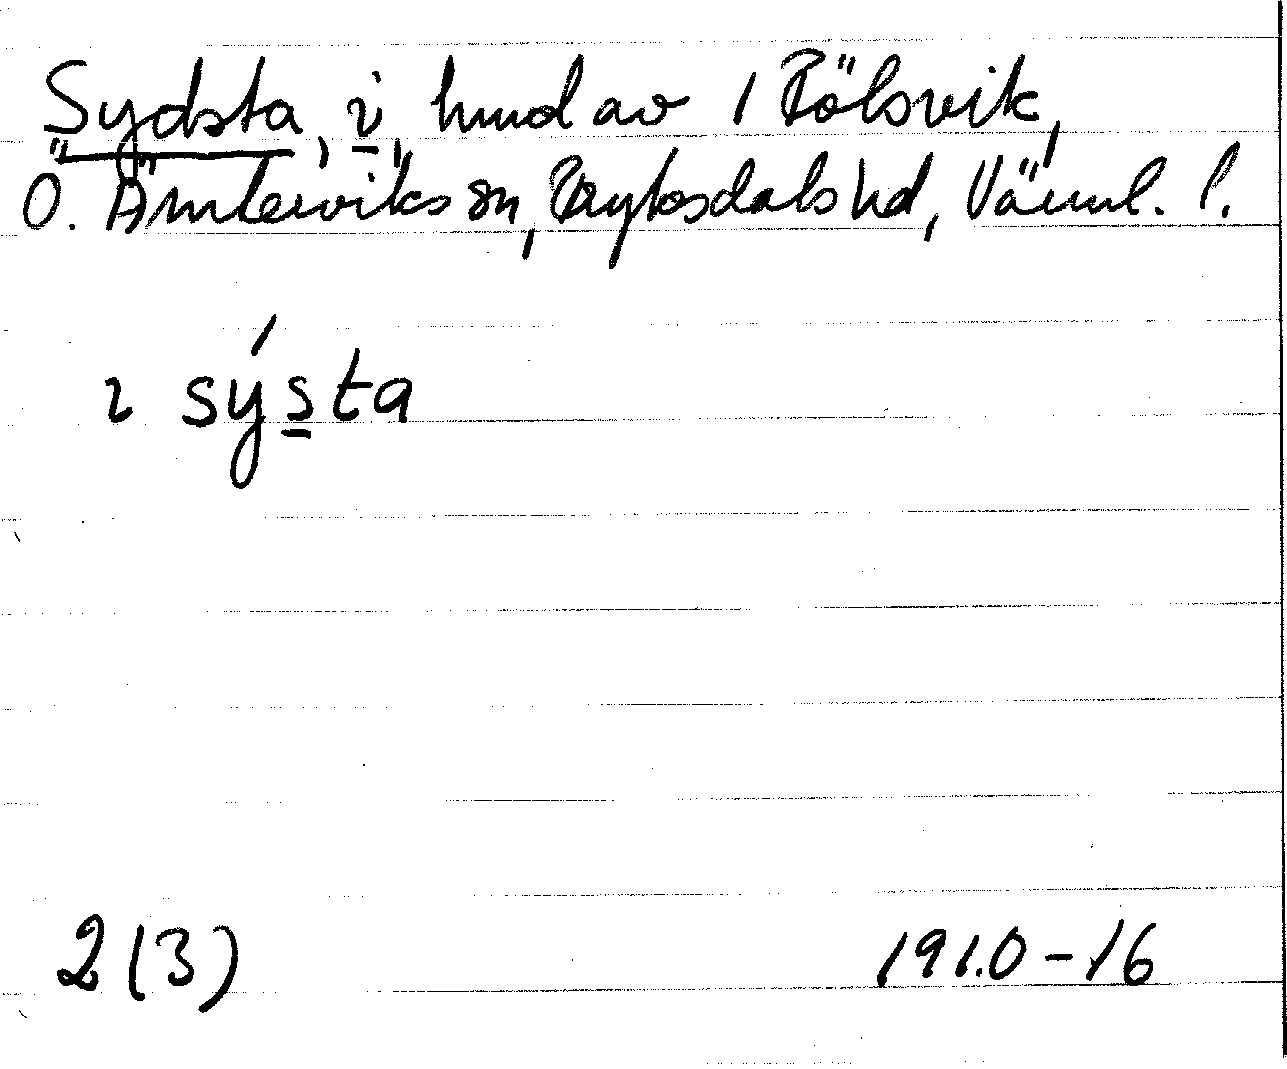 Sydsta, i, hmd av 1 Rölsvik,
Ö. Ämterviks sn, Fryksdals hd, Värml. l.
ı sýsta
2(3) 1910-16